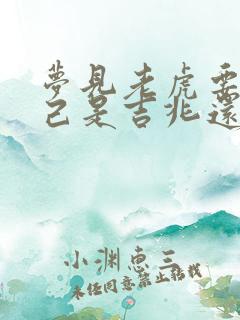 夢見老虎要
己是吉兆還
小渊恵三
未经同意禁止转载